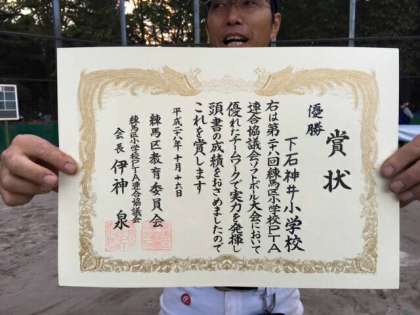 賞状
優勝
下石神井小学校
右は第二十八回練馬区小学校PTA
連合協議会ソフトボール大会において
優れたチームワークで実力を発揮し
頭書の成績をおさめましたので
これを賞します
平成二十八年十月十六日
練馬区教育委員会
練馬区小学校PTA連合協議会
会長 伊神 泉